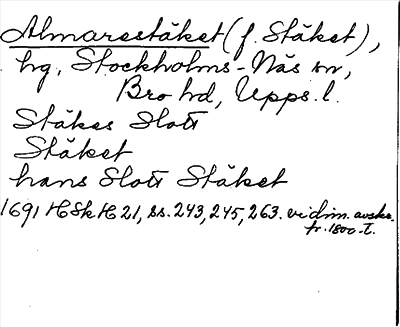 Almarestäket (f. Stäket),
hg, Stockholms-Näs sn,
Bro hd, Upps. l.
Stäkes Slott
Stäket
hans Slott Stäket
1691 HSk H 21, ss. 243, 245, 263. vidim. avskr.
fr. 1800-t.